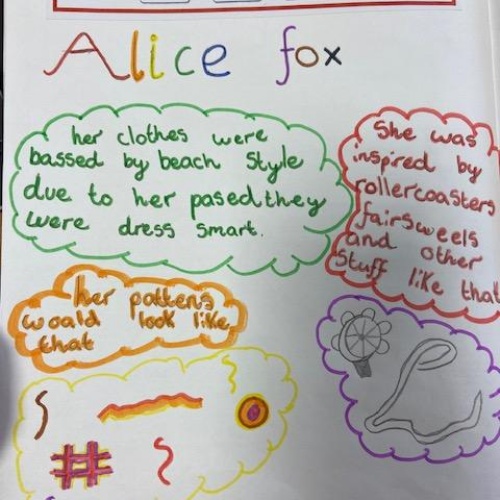 Alice fox
her clothes were
bassed by beach style
due to her pased they
were dress smart.
She was
inspired by
rollercoasters
fairsweels
and other
stuff like that
her pattens
woald look like
that